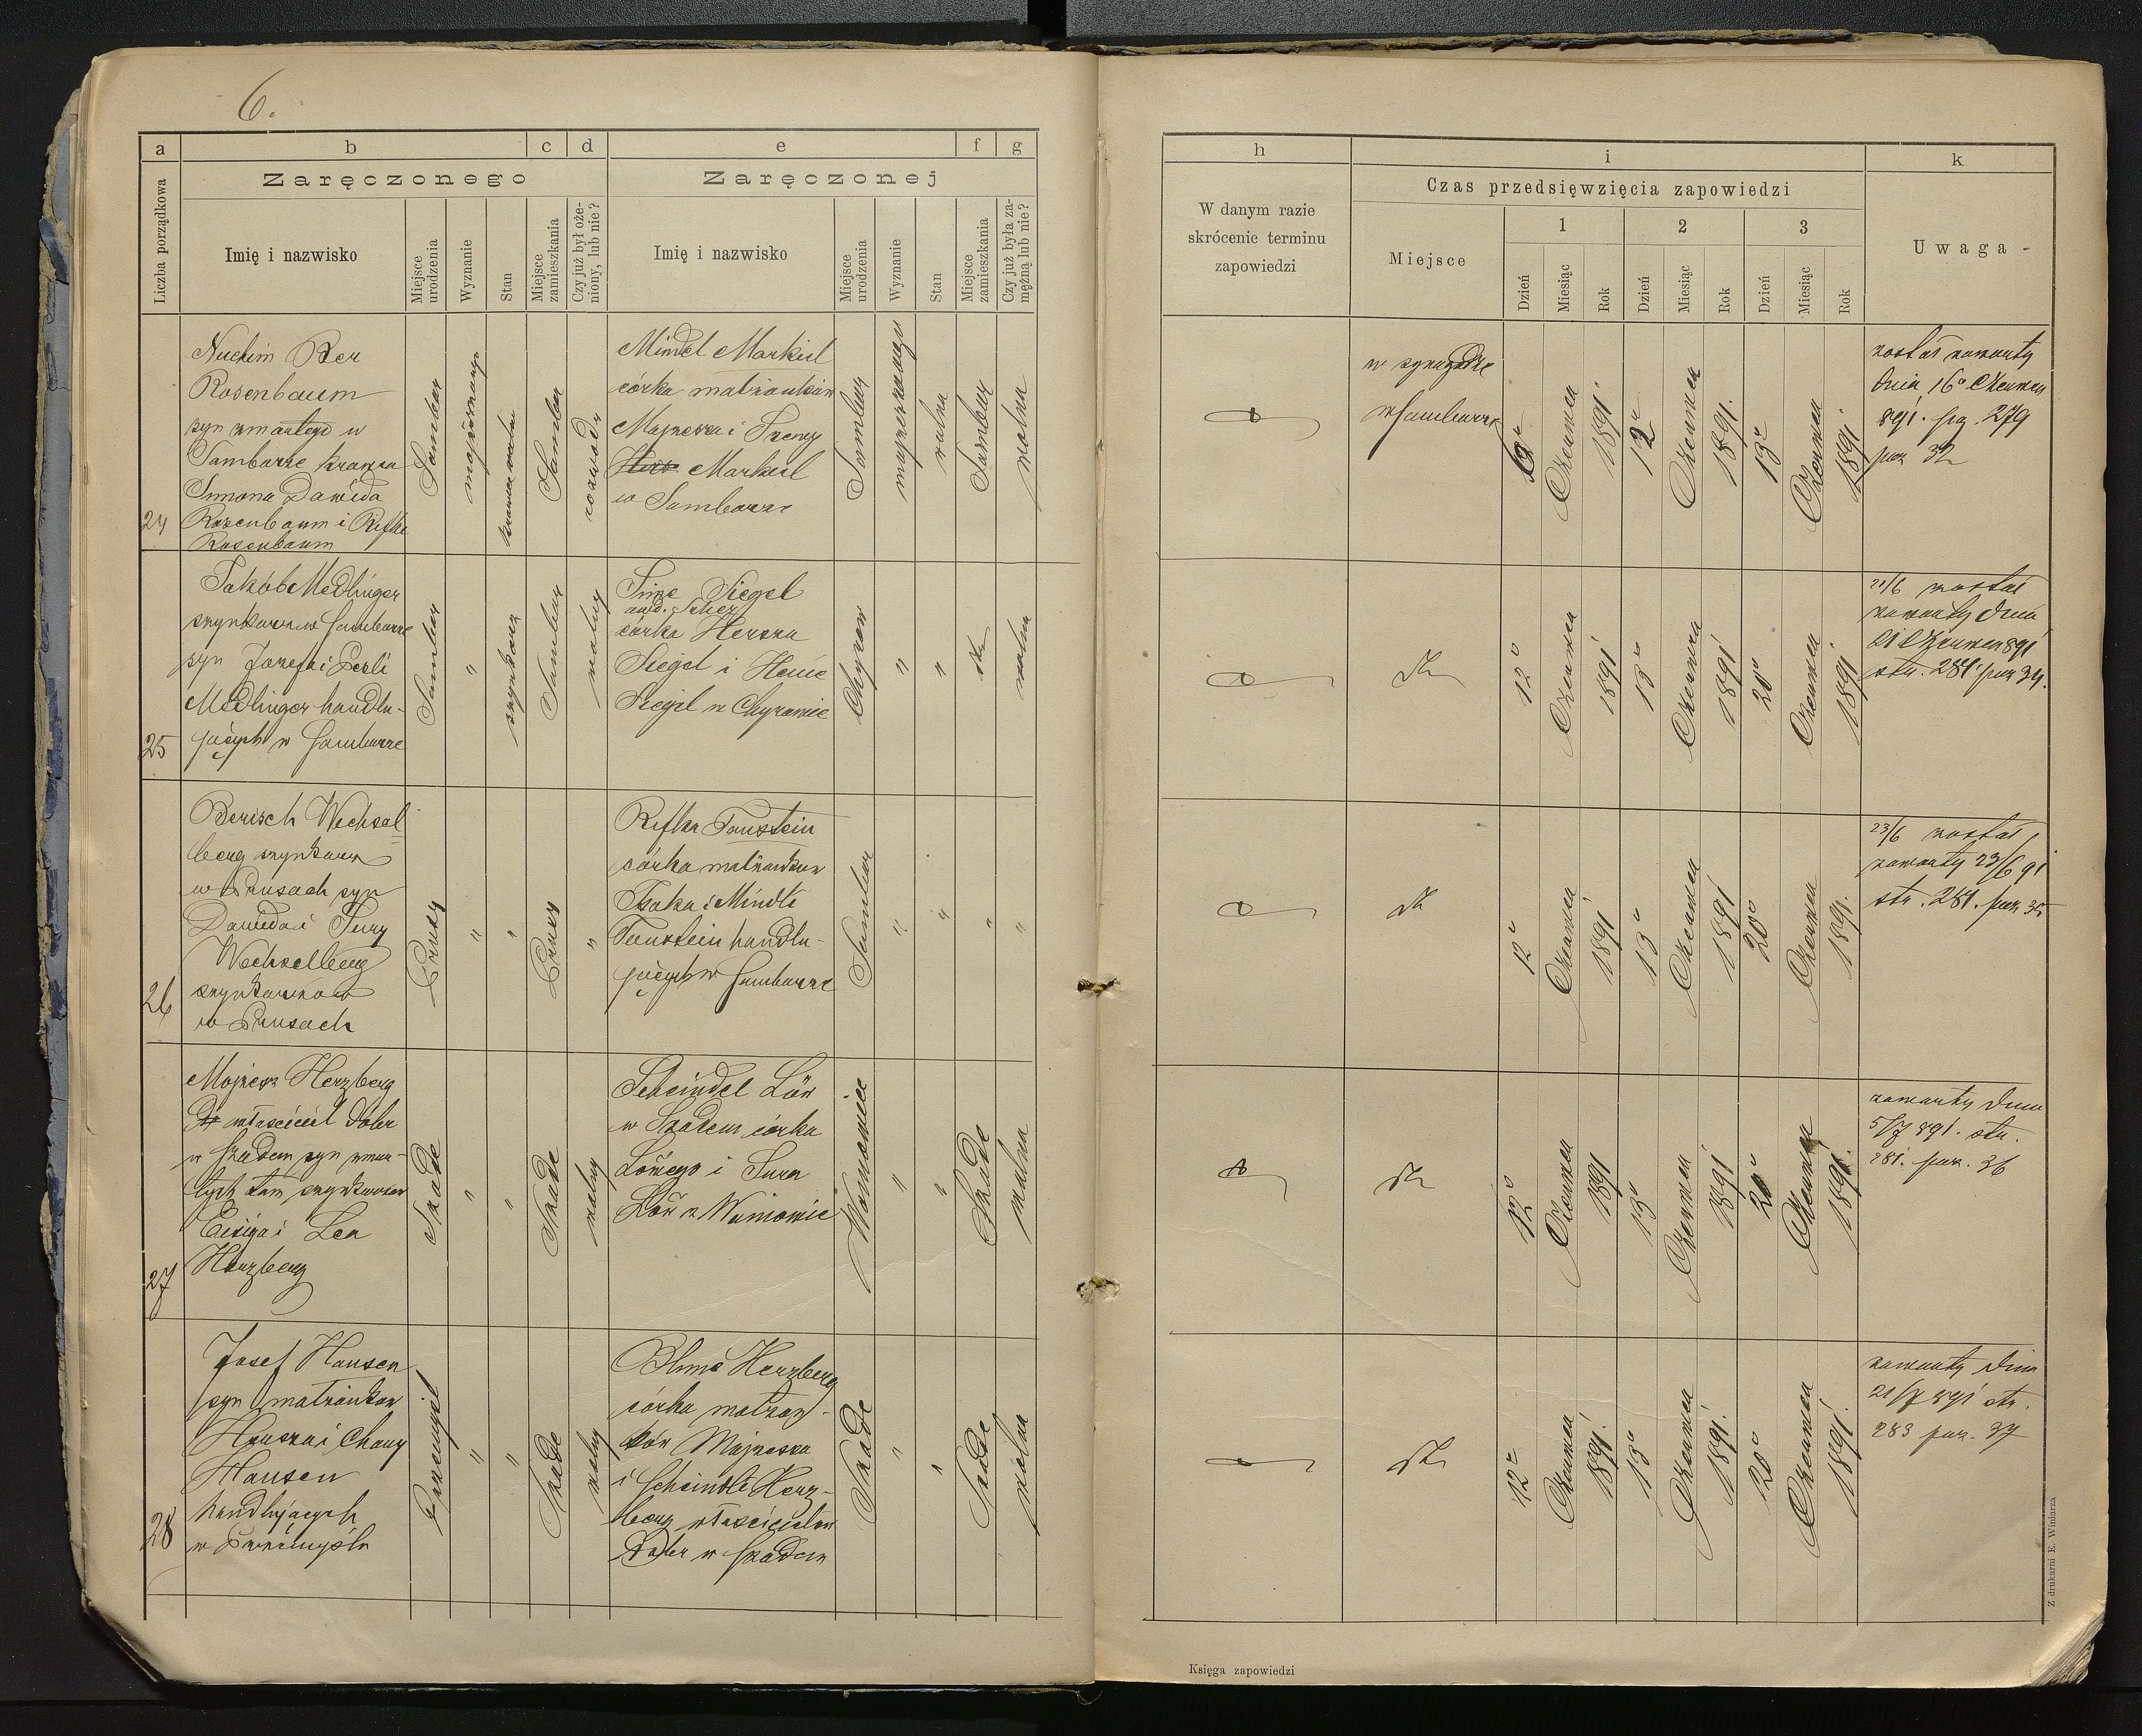 6.
a b c d e f g
Zaręczonego
Zaręczonej
Liczba porządkowa
Imię i nazwisko
Miejsce urodzenia
Wyznanie
Stan
Miejsce zamieszkania
Czy już był ożeniony, lub nie?
Imię i nazwisko
Miejsce urodzenia
Wyznanie
Stan
Miejsce zamieszkania
Czy już była zamężną lub nie?
h i k
W danym razie
skrócenie terminu
zapowiedzi
Czas przedsięwzięcia zapowiedzi
Miejsce
1 2 3
Dzień Miesiąc Rok Dzień Miesiąc Rok Dzień Miesiąc Rok
Uwaga
24
Nuchim Ber
Rosenbaum
syn zmarłego w
Samborze krawca
Simona Dawida
Rosenbaum i Rifke
Rosenbaum
Sambor
Sambor
Mindel Markiel
córka małżonków
Mojżesza i
Markiel
w Samborze
Sambor
Sambor
wolna
w synagodze
w Samborze
Czerwca 1891
12 Czerwca 1891.
13 Czerwca 1891
został zawarty
dnia 16 Czerwca
891. pg. 279
poz 32
25
Jakób Medlinger
szynkarz w Samborze
syn Józefa i Perli
Medlinger handlu-
jących w Samborze
Sambor
"
szynkarz
Sambor
wolny
Siegel
córka Herszka
Siegel i Henie
Siegel w Chyrowie
Chyrów
"
"
wolna
12 Czerwca 1891
13 Czerwca 1891
20 Czerwca 1891
21/6 został
zawarty dnia
21 Czerwca 891
str. 281 poz 34.
26
Berisch Wechsel
berg szynkarz
w Prusach syn
Dawida i Sury
Wechselberg
szynkarzów
w Prusach
Prusy
"
"
Prusy
"
Rifka Faustein
córka małżonków
Izaka i Mindli
handlu-
jących w Samborze
Sambor
"
"
"
"
12 Czerwca 1891
13 Czerwca 1891
20 Czerwca 1891.
23/6 został
zawarty 23/6 91
str. 281. poz 35
27
Mojżesz Herzberg
właściciel dóbr
w Szadem syn zmar-
łych tam szynkarzów
Eisiga i Lea
Herzberg
Szade
"
"
Szade
wolny
Scheindel Löw
w Szadem córka
i Sura
Löw z Waniowic
Szade
wolna
"
"
12 Czerwca 1891
13 Czerwca 1891
20 Czerwca 1891.
zawarty dnia
5/7 891. str.
281. poz. 36
28
Josef Hausen
syn małżonków
i Chany
Hausen
handlujących
w Przemyślu
Przemyśl
"
"
Szade
wolny
Blime Herzberg
córka małżon-
ków Mojżesza
i Scheindli Herz-
berg właścicielów
dóbr w Szadem
Szade
"
"
Szade
wolna
12 Czerwca 1891.
13 Czerwca 1891.
20 Czerwca 1891.
zawarty dnia
21/7 891 str.
283 poz. 37
Księga zapowiedzi
Z drukarni E. Winiarza